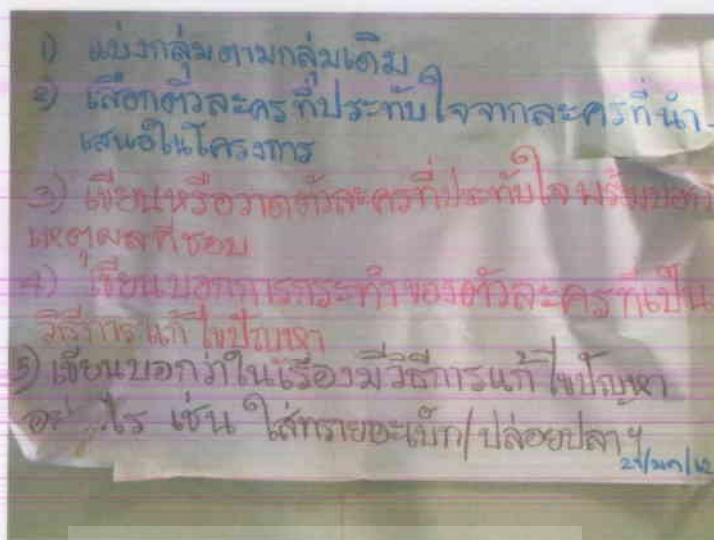 1) แบ่งกลุ่มตามกลุ่มเดิม
2) เลือกตัวละครที่ประทับใจจากละครที่นำ-
เสนอในโครงการ
3) เขียนหรือวาดตัวละครที่ประทับใจ พร้อมบอก
เหตุผลที่ชอบ
4) เขียนบอกการกระทำของตัวละครที่เป็น
วิธีการแก้ไขปัญหา
5) เขียนบอกว่าในเรื่องมีวิธีการแก้ไขปัญหา
อย่างไร เช่น ใส่ทรายอะเบ็ท/ปล่อยปลาฯ